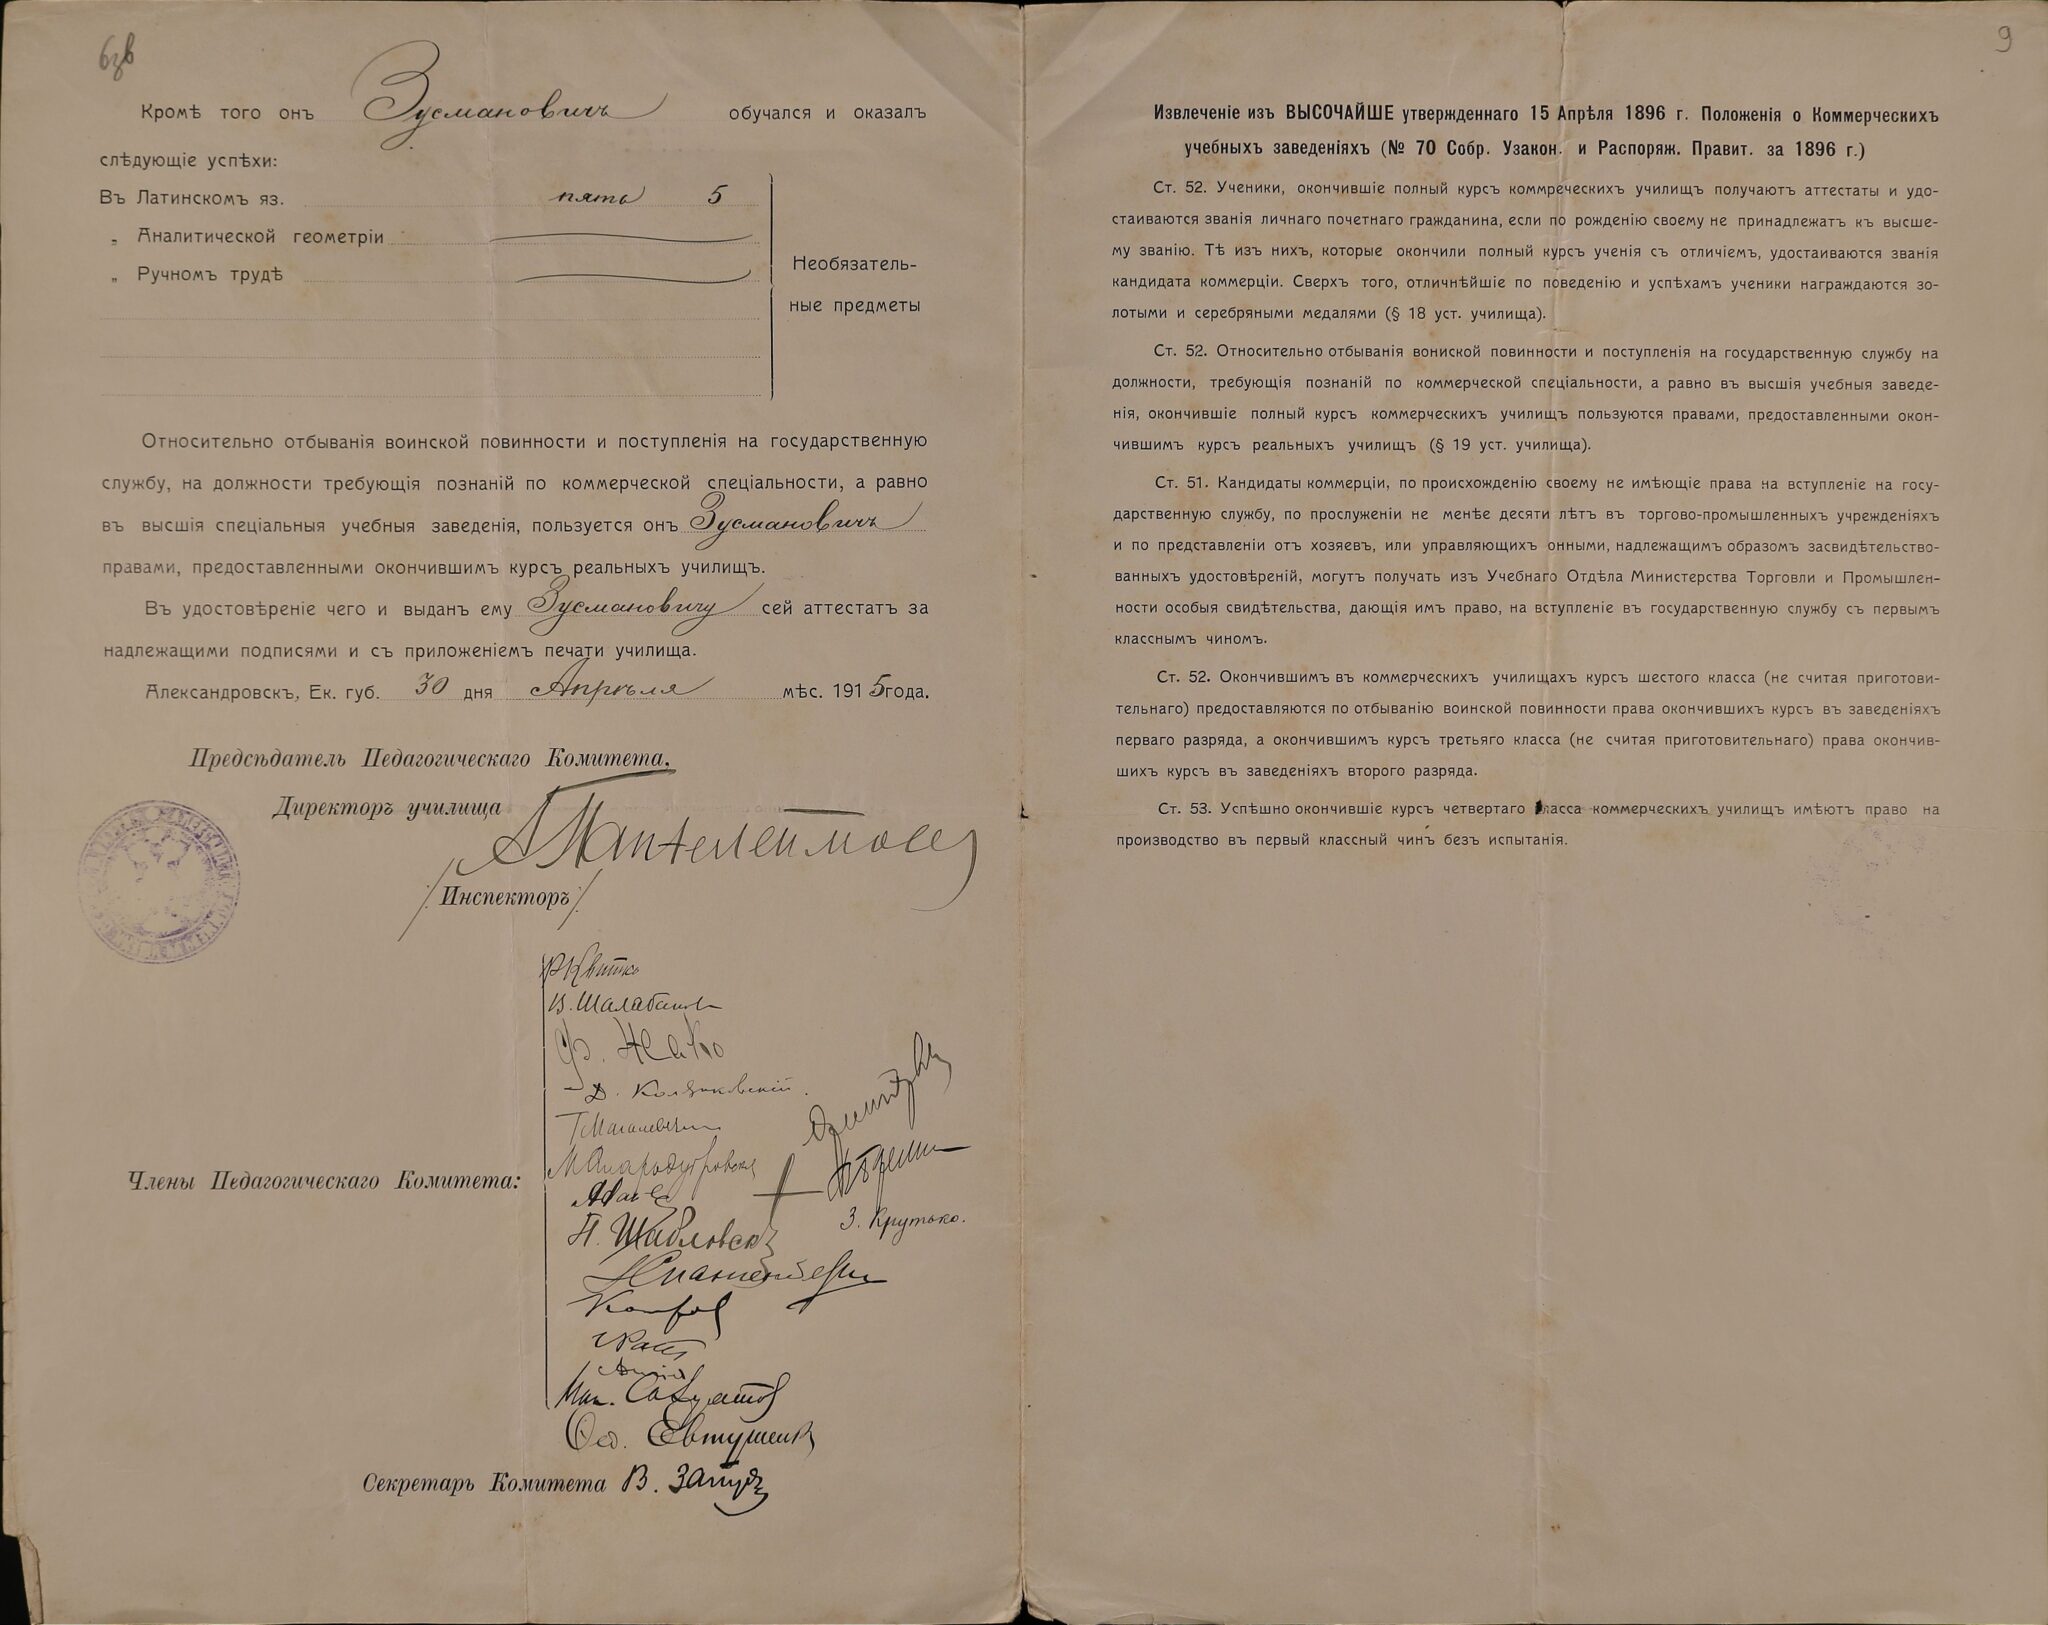 Кромѣ того онъ Зусмановичъ обучался и оказалъ
слѣдующіе успѣхи:
Въ Латинскомъ яз. пять 5
„ Аналитической геометріи
„ Ручномъ трудѣ
Необязатель-
ные предметы
Относительно отбыванія воинской повинности и поступленія на государственную
службу, на должности требующія познаній по коммерческой спеціальности, а равно
въ высшія спеціальныя учебныя заведенія, пользуется онъ Зусмановичъ
правами, предоставленными окончившимъ курсъ реальныхъ училищъ.
Въ удостовѣреніе чего и выданъ ему Зусмановичу сей аттестатъ за
надлежащими подписями и съ приложеніемъ печати училища.
Александровскъ, Ек. губ. 30 дня Апрѣля мѣс. 1915 года.
Предсѣдатель Педагогическаго Комитета.
Директоръ училища
/Инспекторъ/
Р Квитко
В. Шалабанов
Ф. Жако
Д.
Члены Педагогическаго Комитета:
П. Шабловск
З. Крутько.
Евтушенк
Секретарь Комитета В.
9
Извлеченіе изъ ВЫСОЧАЙШЕ утвержденнаго 15 Апрѣля 1896 г. Положенія о Коммерческихъ
учебныхъ заведеніяхъ (№ 70 Собр. Узакон. и Распоряж. Правит. за 1896 г.)
Ст. 52. Ученики, окончившіе полный курсъ коммреческихъ училищъ получаютъ аттестаты и удо-
стаиваются званія личнаго почетнаго гражданина, если по рожденію своему не принадлежатъ къ высше-
му званію. Тѣ изъ нихъ, которые окончили полный курсъ ученія съ отличіемъ, удостаиваются званія
кандидата коммерціи. Сверхъ того, отличнѣйшіе по поведенію и успѣхамъ ученики награждаются зо-
лотыми и серебряными медалями (§ 18 уст. училища).
Ст. 52. Относительно отбыванія вониской повинности и поступленія на государственную службу на
должности, требующія познаній по коммерческой спеціальности, а равно въ высшія учебныя заведе-
нія, окончившіе полный курсъ коммерческихъ училищъ пользуются правами, предоставленными окон-
чившимъ курсъ реальныхъ училищъ (§ 19 уст. училища).
Ст. 51. Кандидаты коммерціи, по происхожденію своему не имѣющіе права на вступленіе на госу-
дарственную службу, по прослуженіи не менѣе десяти лѣтъ въ торгово-промышленныхъ учрежденіяхъ
и по представленіи отъ хозяевъ, или управляющихъ онными, надлежащимъ образомъ засвидѣтельство-
ванныхъ удостовѣреній, могутъ получать изъ Учебнаго Отдѣла Министерства Торговли и Промышлен-
ности особыя свидѣтельства, дающія имъ право, на вступленіе въ государственную службу съ первымъ
класснымъ чиномъ.
Ст. 52. Окончившимъ въ коммерческихъ училищахъ курсъ шестого класса (не считая приготови-
тельнаго) предоставляются по отбыванію воинской повинности права окончившихъ курсъ въ заведеніяхъ
перваго разряда, а окончившимъ курсъ третьяго класса (не считая приготовительнаго) права окончив-
шихъ курсъ въ заведеніяхъ второго разряда.
Ст. 53. Успѣшно окончившіе курсъ четвертаго класса коммерческихъ училищъ имѣютъ право на
производство въ первый классный чинъ безъ испытанія.